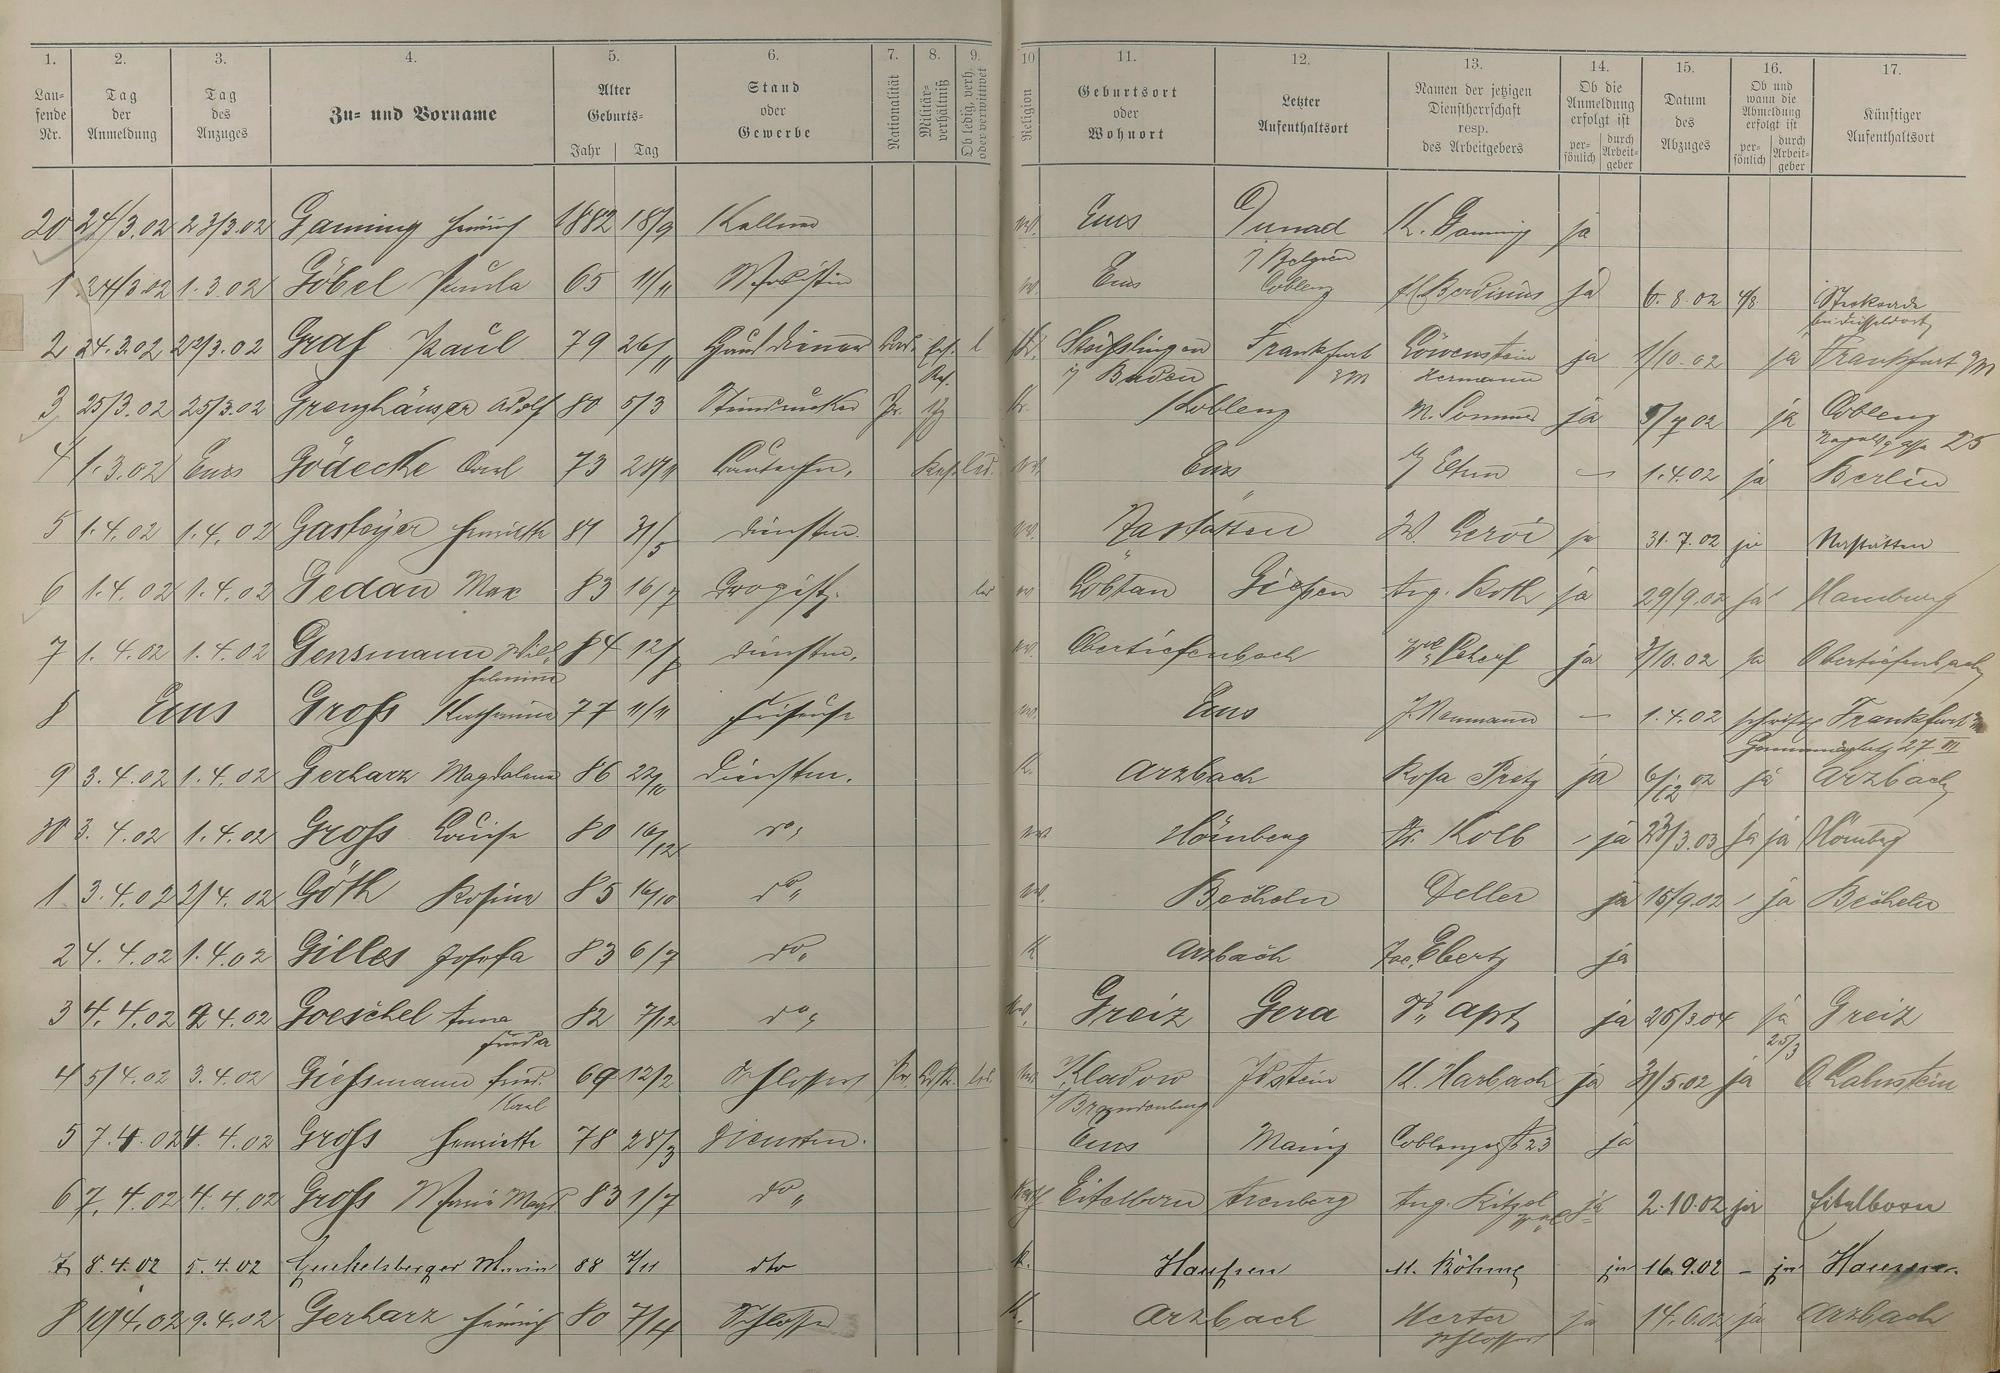 1. 2. 3. 4. 5. 6. 7. 8. 9. 10 11. 12. 13. 14. 15. 16. 17.
Lau-
fende
Nr.
Tag
der
Anmeldung
Tag
des
Anzuges
Zu- und Vorname
Alter
Geburts-
Jahr Tag
Stand
oder
Gewerbe
Nationalität
Militär-
verhältniß
Ob ledig, verh.
oder verwittwet
Religion
Geburtsort
oder
Wohnort
Letzter
Aufenthaltsort
Namen der jetzigen
Dienstherrschaft
resp.
des Arbeitgebers
Ob die
Anmeldung
erfolgt ist
per-
sönlich
durch
Arbeit-
geber
Datum
des
Abzuges
Ob und
wann die
Abmeldung
erfolgt ist
per-
sönlich
durch
Arbeit-
geber
Künftiger
Aufenthaltsort
20 24/3.02 23/3.02 Ganning Heinrich 1882 18/9 Kellner Ems Dunad K. Ganning ja
i/ Belgien
1 24/3.02 1.3.02 Göbel Paula 65 11/11 Ems Coblenz ja 6.8.02 4/8
2 24.3.02 22/3.02 Graf Paul 79 26/11 Hausdiener l Steißlingen Frankfurt Löwenstein ja 1/10.02 ja Frankfurt a/M
i/ Baden a/M Hermann
3 25/3.02 25/3.02 Grenzhäuser Adolf 80 5/3 Steindrucker Pr. K. Koblenz M. Sommer ja 5/7 02 ja Coblenz
25
4 1.3.02 Ems Gödecke Carl 73 28/11 led. Ems Elhm — 1.4.02 ja Berlin
5 1.4.02 1.4.02 Gasteyer Henriette 81 31/5 Dienstm. Nastätten W. Leroi ja 31.7.02 ja Nastätten
6 1.4.02 1.4.02 Gedan Max 83 16/7 Drogist. led Löbtau Gießen Aug. Roth ja 29/9.02 ja Hamburg
7 1.4.02 1.4.02 Gensmann Wil- 84 12/8 Dienstm. Obertiefenbach Scherf ja 3/10.02 ja Obertiefenbach
helmine
8 Ems Groß Katharina 77 11/11 Friseuse Ems J. Neumann — 1.4.02 schriftl. Frankfurt a/M
27 III
9 3.4.02 1.4.02 Gerharz Magdalena 86 22/10 Dienstm. K. Arzbach Rosa Pretz ja 6/12 02 ja Arzbach
30 3.4.02 1.4.02 Groß Louise 80 16/12 do. Hömberg Fr. Kolb ja 23/3.03 ja ja Hömberg
1 3.4.02 2/4.02 Göth Rosina 85 16/10 do. Becheln Deller ja 15/9.02 ja Becheln
2 4.4.02 1.4.02 Gilles Josefa 83 6/7 do. K Arzbach Jac. Ebertz ja
3 4.4.02 2.4.02 Goeschel Anna 82 7/12 do. Greiz Gera Apt ja 25/3.04 ja Greiz
Frieda 25/3
4 5/4.02 3.4.02 Gießmann Fried. 69 12/2 Schlosser Pr. led. Kladow Idstein K. Harbach ja 31/5.02 ja O. Lahnstein
Karl i/ Brandenburg
5 7.4.02 4.4.02 Groß Henriette 78 28/3 Dienstm. Ems Mainz Coblenzerstr 23 ja
6 7.4.02 4.4.02 Groß Maria Magd 83 1/7 do. Kath Eitelborn Arenberg Aug. Kitzel ja 2.10.02 ja Eitelborn
7 8.4.02 5.4.02 Guckelsberger Maria 88 7/11 dto k. Hausen M. Böhme ja 16.9.02 – ja Hausen
8 10/4.02 9.4.02 Gerharz Heinrich 80 7/4 Schlosser K. Arzbach Herter ja 14.6.02 ja Arzbach
Schlosser